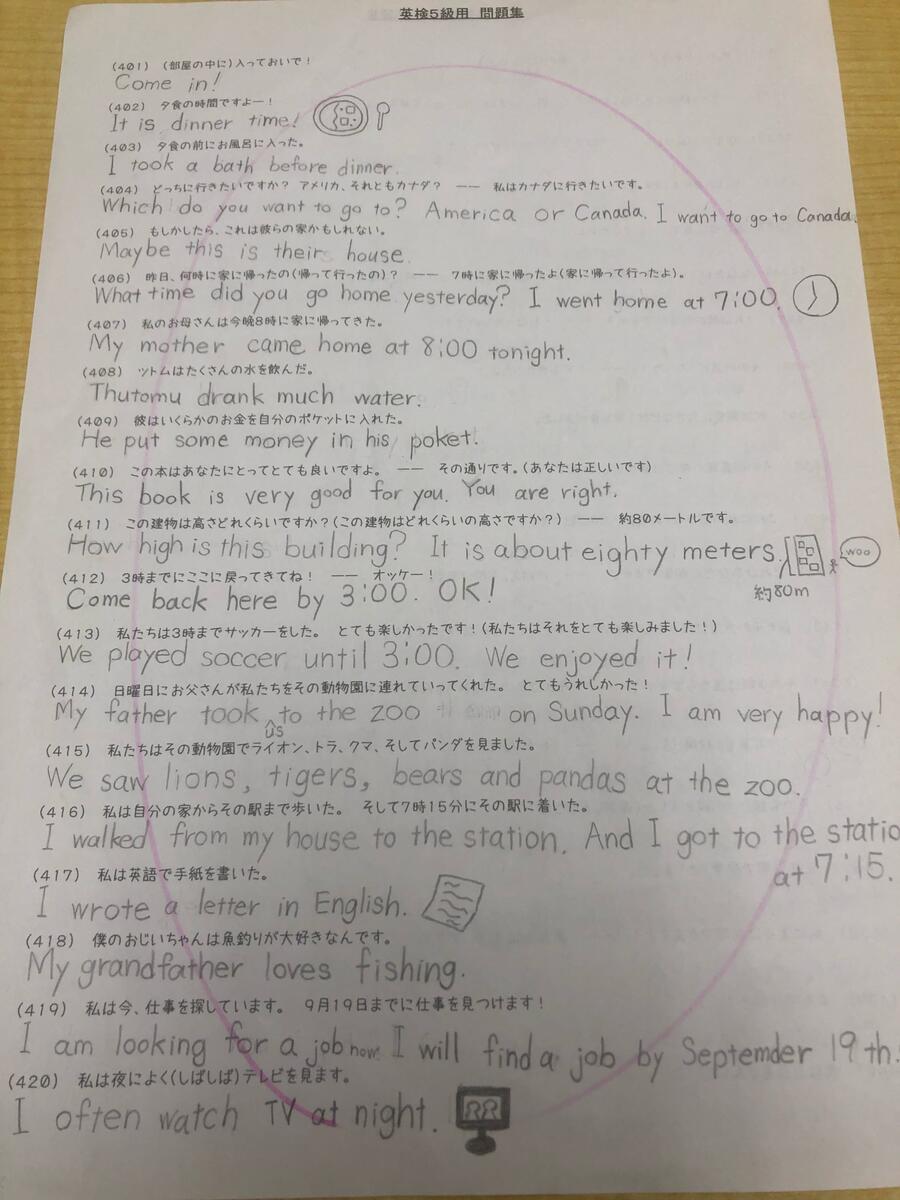 英検5級用 問題集
(401) (部屋の中に)入っておいで!
Come in!
(402) 夕食の時間ですよー!
It is dinner time!
(403) 夕食の前にお風呂に入った。
I took a bath before dinner.
(404) どっちに行きたいですか? アメリカ、それともカナダ? ―― 私はカナダに行きたいです。
Which do you want to go to? America or Canada. I want to go to Canada.
(405) もしかしたら、これは彼らの家かもしれない。
Maybe this is their house.
(406) 昨日、何時に家に帰ったの(帰って行ったの)? ―― 7時に家に帰ったよ(家に帰って行ったよ)。
What time did you go home yesterday? I went home at 7:00.
(407) 私のお母さんは今晩8時に家に帰ってきた。
My mother came home at 8:00 tonight.
(408) ツトムはたくさんの水を飲んだ。
Thutomu drank much water.
(409) 彼はいくらかのお金を自分のポケットに入れた。
He put some money in his poket.
(410) この本はあなたにとってとても良いですよ。 ―― その通りです。(あなたは正しいです)
This book is very good for you. You are right.
(411) この建物は高さどれくらいですか?(この建物はどれくらいの高さですか?) ―― 約80メートルです。
How high is this building? It is about eighty meters.
woo
約80m
(412) 3時までにここに戻ってきてね! ―― オッケー!
Come back here by 3:00. OK!
(413) 私たちは3時までサッカーをした。 とても楽しかったです!(私たちはそれをとても楽しみました!)
We played soccer until 3:00. We enjoyed it!
(414) 日曜日にお父さんが私たちをその動物園に連れていってくれた。 とてもうれしかった!
My father took us to the zoo on Sunday. I am very happy!
(415) 私たちはその動物園でライオン、トラ、クマ、そしてパンダを見ました。
We saw lions, tigers, bears and pandas at the zoo.
(416) 私は自分の家からその駅まで歩いた。 そして7時15分にその駅に着いた。
I walked from my house to the station. And I got to the statio
at 7:15.
(417) 私は英語で手紙を書いた。
I wrote a letter in English.
(418) 僕のおじいちゃんは魚釣りが大好きなんです。
My grandfather loves fishing.
(419) 私は今、仕事を探しています。 9月19日までに仕事を見つけます!
I am looking for a job now. I will find a job by Septemder 19th!
(420) 私は夜によく(しばしば)テレビを見ます。
I often watch TV at night.